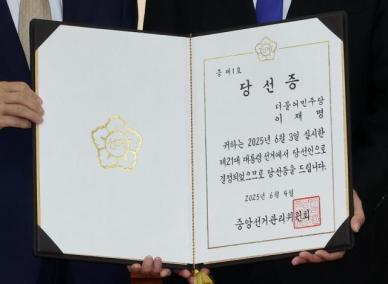 증 제1호
당선증
더불어민주당
이 재 명
귀하는 2025년 6월 3일 실시한
제21대 대통령선거에서 당선인으로
결정되었으므로 당선증을 드립니다.
2025년 6월 4일
중앙선거관리위원회